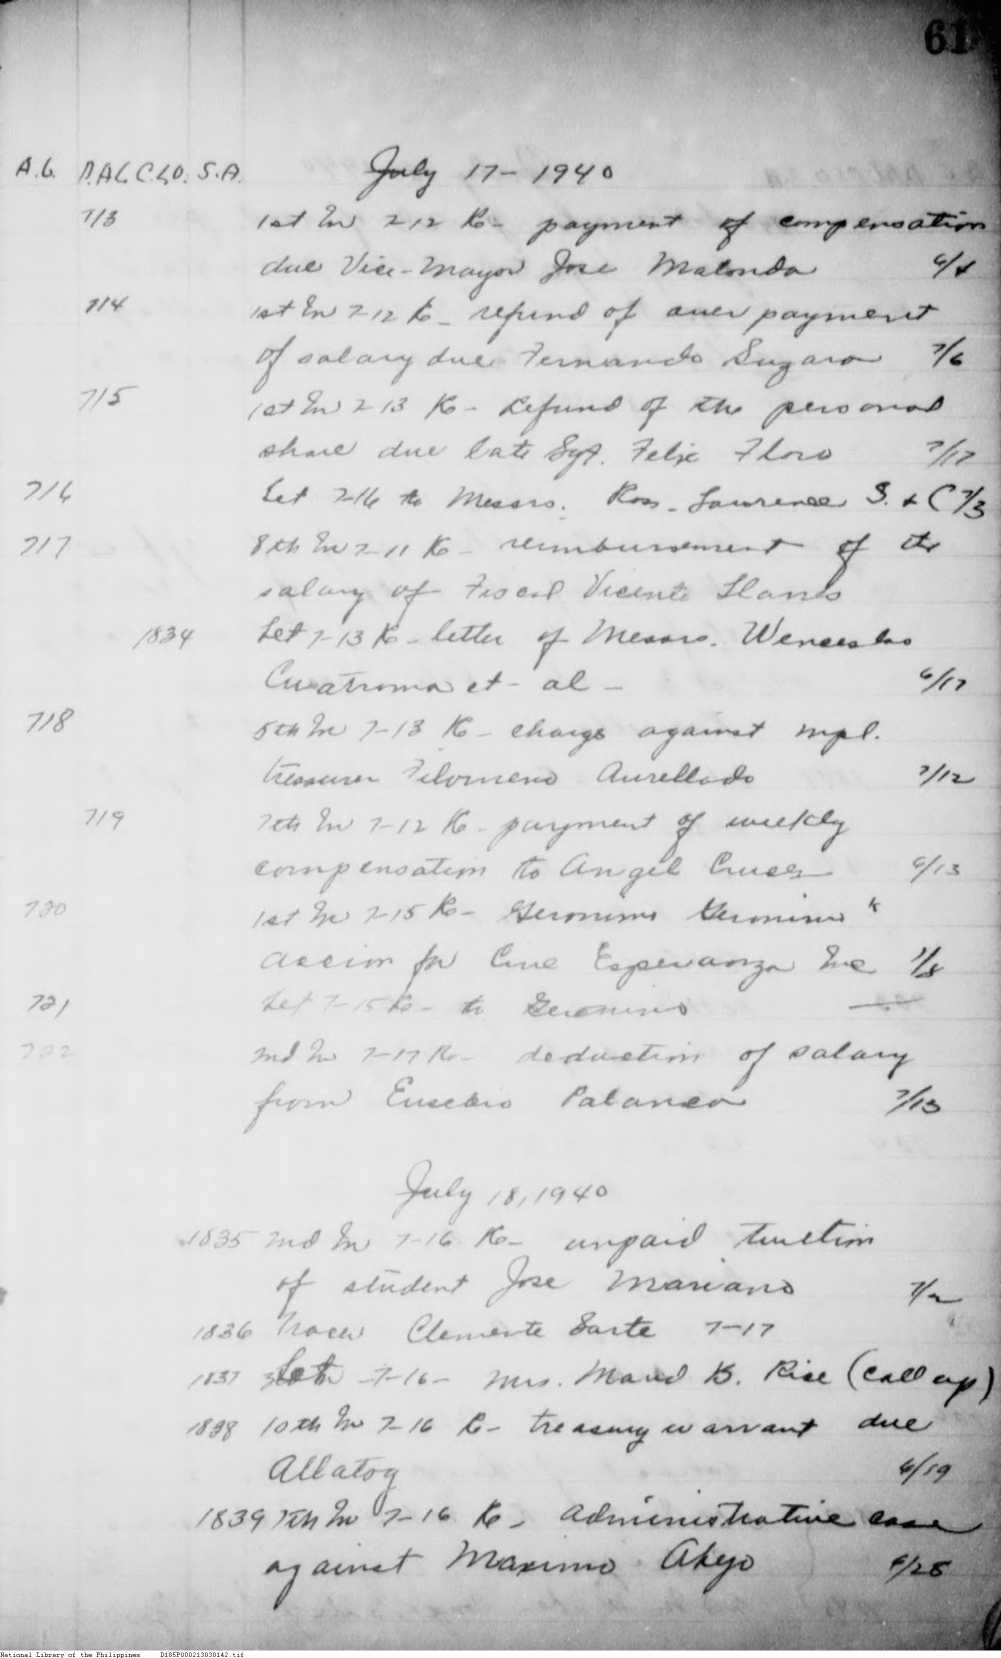 61
A.G. D.A.L.C.L.O. S.A. July 17-1940
713 1st In 7-12 Re- payment of compensation
due Vice-Mayor Jose Malonda 6/4
714 1st In 7-12 Re- refund of over payment
of salary due Fernando Suguaro 7/6
715 1st In 7-13 Re- Refund of the personal
share due late Sgt. Felix Floro 7/17
716 Let 7-16 to Messrs. Ross, Lawrence S. & C 7/3
717 8th In 7-11 Re- reimbursement of the
salary of Fiscal Vicente Llanes
1834 Let 7-13 Re- letter of Messrs. Wenceslao
Cuatroma et-al-  6/17
718 5th In 7-13 Re- charge against mpl.
treasurer Filomeno Aurellado 7/12
719 7th In 7-12 Re- payment of weekly
compensation to Angel Cruces 6/13
720 1st In 7-15 Re- Geronimo Geronimo
accion for Cine Esperanza Inc 7/8
721 Let 7-15 Re- to Geronimo
722 2nd In 7-17 Re- deduction of salary
from Eusebio Palanca 7/13
July 18, 1940
1835 2nd In 7-16 Re- unpaid tuition
of student Jose Mariano 7/2
1836 Clemente Sarte 7-17
1837 Let 7-16- Mrs. Maud B. Rise (call up)
1838 10th In 7-16 Re- treasury warrant due
Allatog 6/19
1839 7th In 7-16 Re- administrative case
against Maximo Akejo 6/28
National Library of the Philippines D185P000213030142.tif